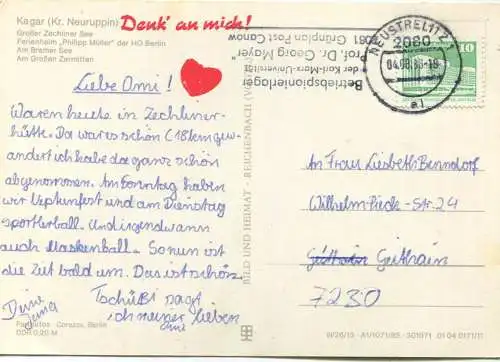 Kagar (Kr. Neuruppin)
Großer Zechliner See
Ferienheim „Philipp Müller" der HO Berlin
Am Bramer See
Am Großen Zermitten
Denk' an mich!
Liebe Omi!
Waren heute in Zechliner-
hütte. Da war es schön (18km gew-
andert ich habe da ganz schön
abgenommen. Am Sonntag haben
wir Neptunfest und am Dienstag
Sportlerball. Und irgendwann
auch Maskenball. So nun ist
die Zeit bald um. Das ist schön.
Tschüßi sagt
ich meiner lieben
omi
Deine
Jana
Betriebspionierlager
"Prof. Dr. Georg Mayer"
der Karl-Marx-Universität
2081 Grünplan Post Canow
NEUSTRELITZ 1
2080
04.08.86-18
a 1
10
An Frau Liesbeth Benndorf
Wilhelm-Pieck-Str. 24
Geithain
7230
BILD UND HEIMAT · REICHENBACH
Corazza, Berlin
DDR 0,20 M
W/26/13 A1/1071/85 301971 01 04 0171/11